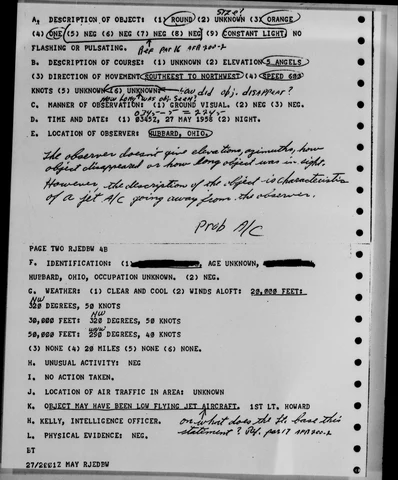 Size?
A. DESCRIPTION OF OBJECT: (1) ROUND (2) UNKNOWN (3) ORANGE
(4) ONE (5) NEG (6) NEG (7) NEG (8) NEG (9) CONSTANT LIGHT, NO
FLASHING OR PULSATING. Ref par 16 AFR 200-2
B. DESCRIPTION OF COURSE: (1) UNKNOWN (2) ELEVATION 5 ANGELS
(3) DIRECTION OF MOVEMENT SOUTHEEST TO NORTHWEST (4) SPEED 600
KNOTS (5) UNKNOWN (6) UNKNOWN. How did obj. disappear?
How long was obj. seen?
C. MANNER OF OBSERVATION: (1) GROUND VISUAL. (2) NEG (3) NEG.
0345 - 5 = 2245
D. TIME AND DATE: (1) 0345Z, 27 MAY 1958 (2) NIGHT.
E. LOCATION OF OBSERVER: HUBBARD, OHIO.
The observer doesn't give elevations, azimuths, how
object disappeared or how long object was in sight.
However, the description of the object is characteristic
of a jet A/C going away from the observer.
Prob A/C
PAGE TWO RJEDBW 4B
F. IDENTIFICATION: (1) , AGE UNKNOWN,
HUBBARD, OHIO, OCCUPATION UNKNOWN. (2) NEG.
G. WEATHER: (1) CLEAR AND COOL (2) WINDS ALOFT: 20,000 FEET:
NW
320 DEGREES, 50 KNOTS
NW
30,000 FEET: 320 DEGREES, 50 KNOTS
WNW
50,000 FEET: 290 DEGREES, 40 KNOTS
(3) NONE (4) 20 MILES (5) NONE (6) NONE.
H. UNUSUAL ACTIVITY: NEG
I. NO ACTION TAKEN.
J. LOCATION OF AIR TRAFFIC IN AREA: UNKNOWN
K. OBJECT MAY HAVE BEEN LOW FLYING JET AIRCRAFT. 1ST LT. HOWARD
H. KELLY, INTELLIGENCE OFFICER. on what does the Lt. base this
statement? Ref. par 17 AFR 200-2
L. PHYSICAL EVIDENCE: NEG.
BT
27/2001Z MAY RJEDBW